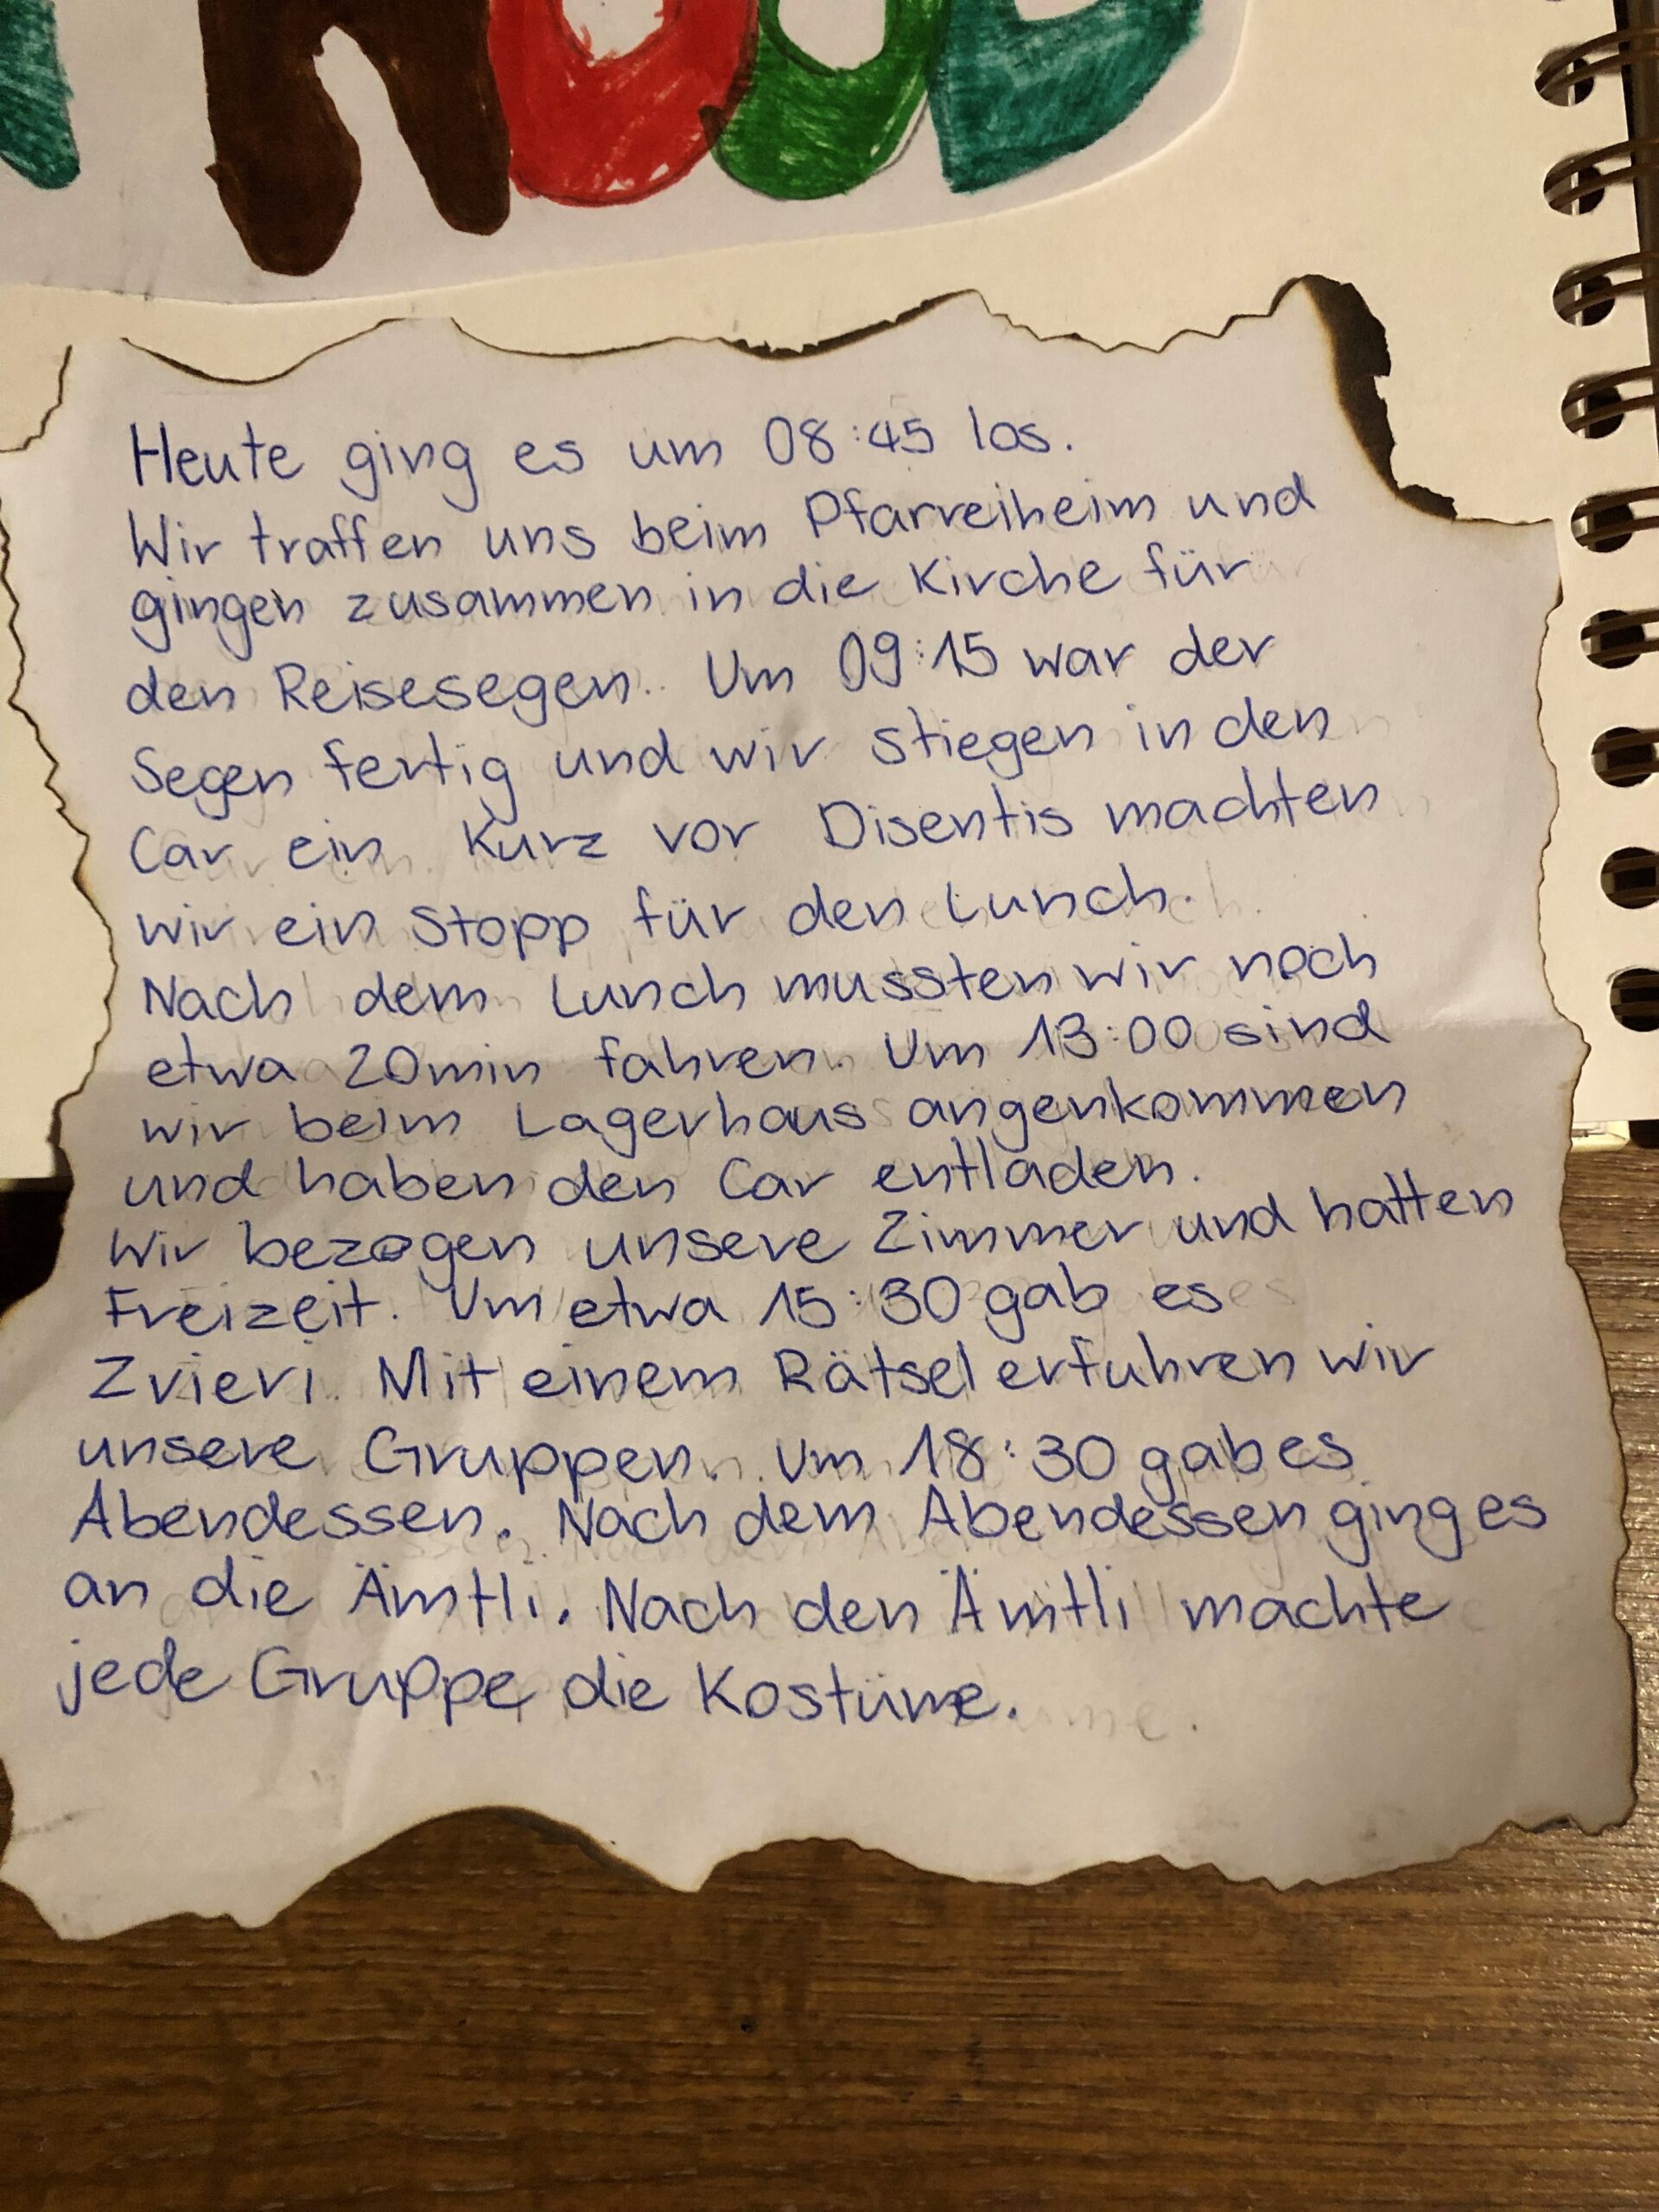 HOOD
Heute ging es um 08:45 los.
Wir traffen uns beim Pfarreiheim und
gingen zusammen in die Kirche für
den Reisesegen. Um 09:15 war der
Segen fertig und wir stiegen in den
Car ein. Kurz vor Disentis machten
wir ein Stopp für den Lunch.
Nach dem Lunch mussten wir noch
etwa 20min fahren. Um 13:00 sind
wir beim Lagerhaus angenkommen
und haben den Car entladen.
Wir bezogen unsere Zimmer und hatten
Freizeit. Um etwa 15:30 gab es
Zvieri. Mit einem Rätsel erfuhren wir
unsere Gruppen. Um 18:30 gab es
Abendessen. Nach dem Abendessen ging es
an die Ämtli. Nach den Ämtli machte
jede Gruppe die Kostüme.